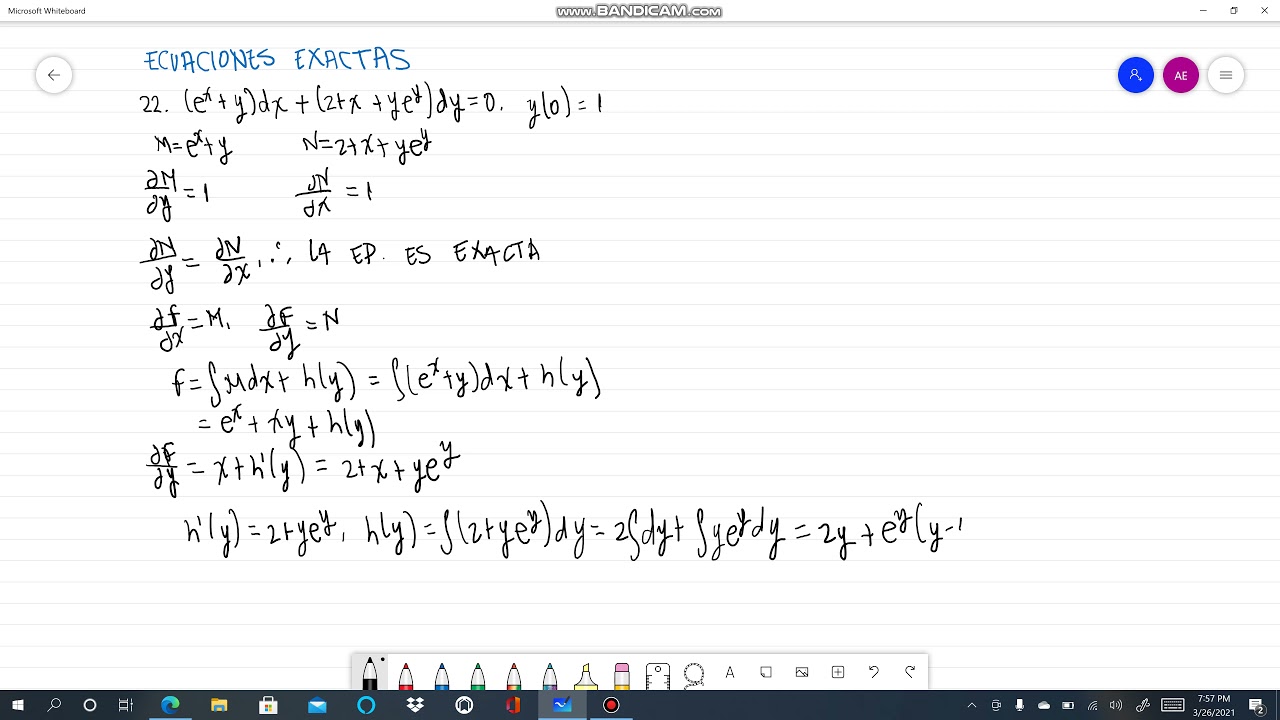 Microsoft Whiteboard
www.BANDICAM.com
ECUACIONES EXACTAS
AE
22. (e^x + y)dx + (2+x + ye^y)dy = 0. y(0) = 1
M = e^x + y N = 2+x + ye^y
∂M/∂y = 1 ∂N/∂x = 1
∂N/∂y = ∂N/∂x, ∴ LA ED. ES EXACTA
∂f/∂x = M, ∂F/∂y = N
f = ∫Mdx + h(y) = ∫(e^x + y)dx + h(y)
= e^x + xy + h(y)
∂F/∂y = x + h'(y) = 2+x + ye^y
h'(y) = 2+ye^y, h(y) = ∫(2+ye^y)dy = 2∫dy + ∫ye^y dy = 2y + e^y(y-1
A
7:57 PM
3/26/2021
2